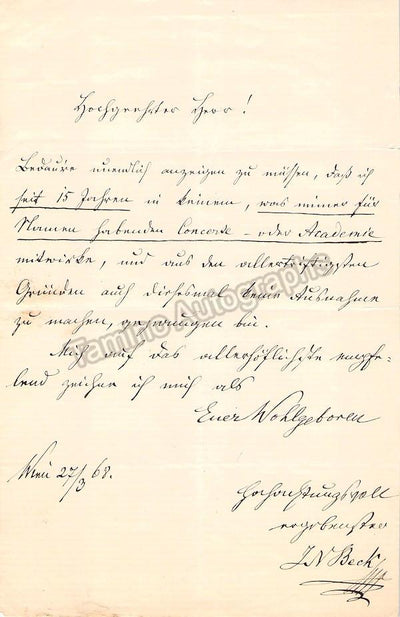 Hochgeehrter Herr!
Bedaure unendlich anzeigen zu müssen, daß ich
seit 15 Jahren in keinem, was immer für
Namen habenden Concerte - oder Academie
mitwirke, und aus den allertriftigsten
Gründen auch diesesmal keine Ausnahme
zu machen, gezwungen bin.
Mich auf das allerhöflichste empfe-
lend zeichne ich mich als
Euer Wohlgeboren
Wien 27/3 68.
hochachtungsvoll
ergebenster
JN Beck
Tamino Autographs